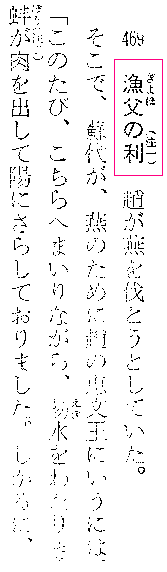 469 漁父の利（注一） 趙が燕を伐とうとしていた。
そこで、蘇代が、燕のために趙の恵文王にいうには、
「このたび、こちらへまいりながら、易水をわたりま
蚌が肉を出して陽にさらしておりました。しかるに、